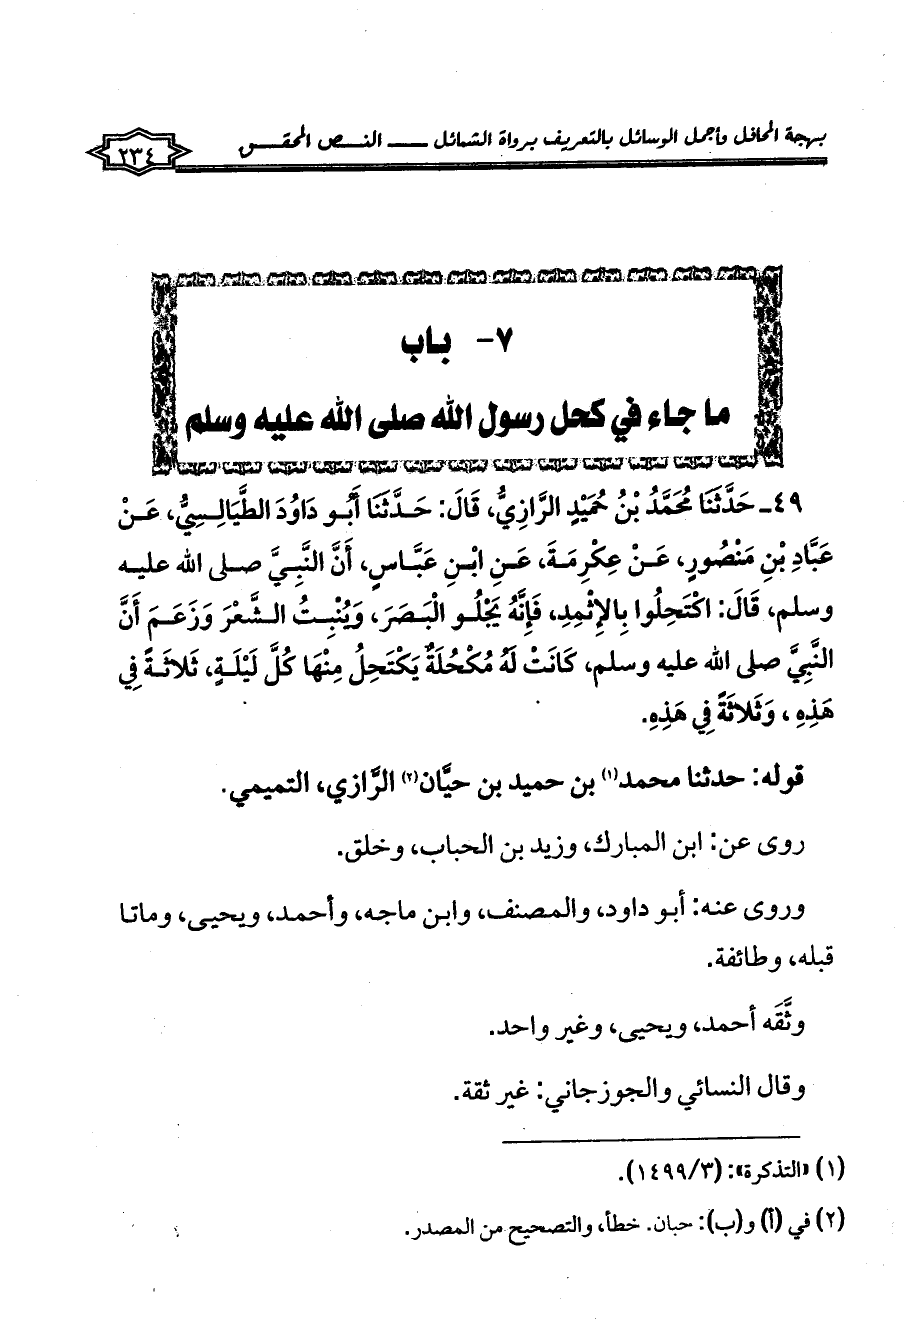 بهجة المحافل وأجمل الوسائل بالتعريف برواة الشمائل ــــ النــص المحقــق
٢٣٤
٧- باب
ما جاء في كحل رسول الله صلى الله عليه وسلم
٤٩ـ حَدَّثَنَا مُحَمَّدُ بْنُ حُمَيْدٍ الرَّازِيُّ، قَالَ: حَدَّثَنَا أَبُو دَاوُدَ الطَّيَالِسِيُّ، عَنْ
عَبَّادِ بْنِ مَنْصُورٍ، عَنْ عِكْرِمَةَ، عَنِ ابْنِ عَبَّاسٍ، أَنَّ النَّبِيَّ صلى الله عليه
وسلم، قَالَ: اكْتَحِلُوا بِالإِثْمِدِ، فَإِنَّهُ يَجْلُو الْبَصَرَ، وَيُنْبِتُ الشَّعْرَ وَزَعَمَ أَنَّ
النَّبِيَّ صلى الله عليه وسلم، كَانَتْ لَهُ مُكْحُلَةٌ يَكْتَحِلُ مِنْهَا كُلَّ لَيْلَةٍ، ثَلاثَةً فِي
هَذِهِ، وَثَلاثَةً فِي هَذِهِ.
قوله: حدثنا محمد(١) بن حميد بن حيَّان(٢) الرَّازي، التميمي.
روى عن: ابن المبارك، وزيد بن الحباب، وخلق.
وروى عنه: أبو داود، والمصنف، وابن ماجه، وأحمد، ويحيى، وماتا
قبله، وطائفة.
وثَّقَه أحمد، ويحيى، وغير واحد.
وقال النسائي والجوزجاني: غير ثقة.
(١) «التذكرة»: (١٤٩٩/٣).
(٢) في (أ) و(ب): حبان. خطأ، والتصحيح من المصدر.